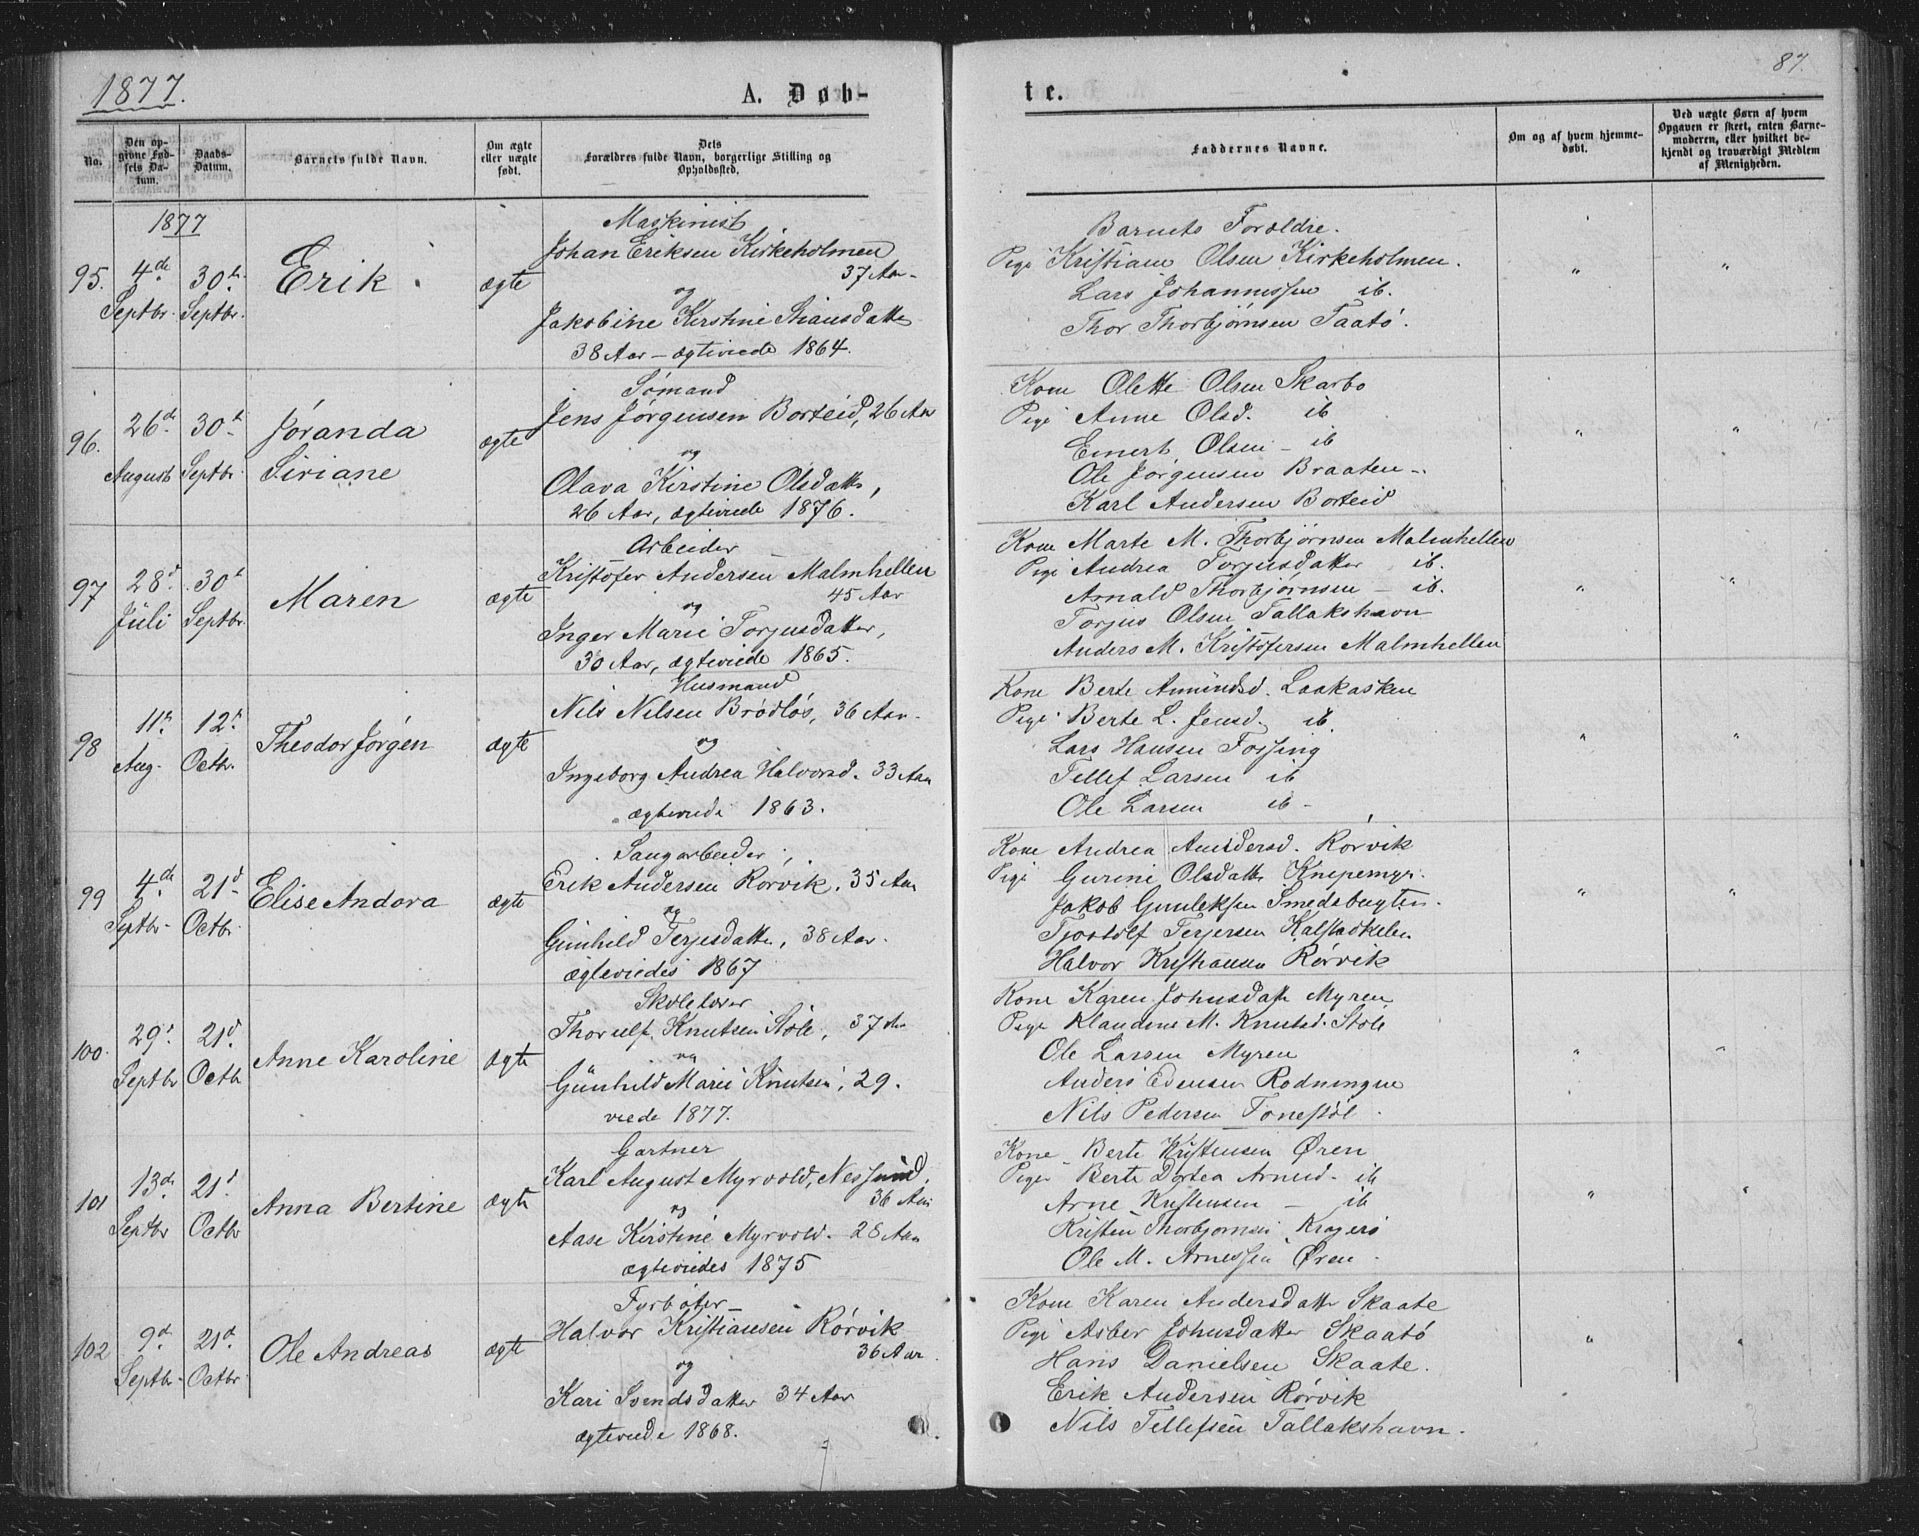 1877.
A. Døb-
No.
Den opgivne Fødsels Datum.
Daabs-Datum.
Barnets fulde Navn.
Om ægte eller uægte født.
Dets Forældres fulde Navn, borgerlige Stilling og Opholdssted.
1877
95.
4de Septbr.
30te Septbr.
Erik
ægte
Maskinist
Johan Eriksen Kirkeholmen
37 Aar
og
Jakobine Kirstine
38 Aar – ægteviede 1864.
96.
26de August
30te Septbr
Jóranda
Siriane
ægte
Sómand
Jens Jørgensen Borteid, 26 Aar
og
Olava Kirstine Olsdatter,
26 Aar, ægteviede 1876.
97
28de Júli
30te Septbr.
Maren
ægte
Arbeider
Kristofer Andersen Malmhellen
45 Aar
og
Inger Marie Torjusdatter,
30 Aar, ægteviede 1865.
98
11te Aug.
12te Octbr.
Theodor Jørgen
ægte
Husmand
Nils Nilsen Brødløs, 36 Aar
og
Ingeborg Andrea Halvorsd. 33 Aar
ægteviede 1863.
99
4de Septbr.
21de Octbr.
Elise Andora
ægte
Saugarbeider,
Erik Andersen Rorvik, 35 Aar
og
Gunhild Terjesdatter, 38 Aar.
ægteviedes 1867
100.
29de Septbr
21de Octbr
Anne Karoline
ægte
Skolelærer
Thorulf Knutsen Støle, 37 Aar
og
Gúnhild Marie Knutsen, 29.
viede 1877.
101
13de Septbr
21de Octbr
Anna Bertine
ægte
Gartner
Karl August Myrvold, Nessund,
36 Aar
og
Aase Kirstine Myrvold. 28 Aar
ægteviedes 1875
102
9de Septbr.
21de Octbr.
Ole Andreas
ægte
Fyrbøter
Halvor Kristiansen Rórvik
36 Aar.
og
Kari Svendsdatter 34 Aar
ægteviede 1868.
87.
te.
Faddernes Navne.
Om og af hvem hjemmedøbt.
Ved uægte Børn af hvem Opgaven er skeet, enten Barnemoderen, eller hvilket bekjendt og troværdigt Medlem af Menigheden.
Barnets Forældre.
Pige Kristiane Olsen Kirkeholmen. " "
Lars Johannissen ib.
Thor Thorbjørnsen Taató.
Kone Olette Olsen Skarbo
Pige Anne Olsd. ib
Einert Olsen – ib " "
Ole Jørgensen Braaten
Karl Andersen Borteid
Kone Marte M. Thorbjørnsen Malmhellen
Pige Andrea Torjusdatter ib.
Arnald Thorbjørnsen – ib. " "
Torjus Olsen Tallakshavn
Anders M. Kristofersen Malmhellen
Kone Berte Amúndsd. Laakasken
Pige Berte L. Jensd. ib
Lars Hansen Fossing " "
Tellef Larsen ib
Ole Larsen ib
Kone Andrea Rorvik
Pige Gurine Olsdatter Knipemyr.
Jakob Gunleksen Smedsbugten. " "
Tjostolf Terjesen Kalstadkilen
Halvor Kristiansen Rørvik
Kone Karen Johnsdatter Myren
Pige Klaudine M. Knutsd. Støle
Ole Larsen Myren " "
Anders Edensen
Nils Pedersen Tonestøl.
Kone Berte Kristensen Øren
Pige Berte Dortea ib
Arne Kristensen – ib " "
Kristen Thorbjornsen Kragerö
Ole M. Arnessen Øren.
Kone Karen Andersdatter Skaate
Pige Asber Johnsdatter Skaató
Hans Danielsen Skaate. " "
Erik Andersen Rórvik
Nils Tellefsen Tallakshavn.